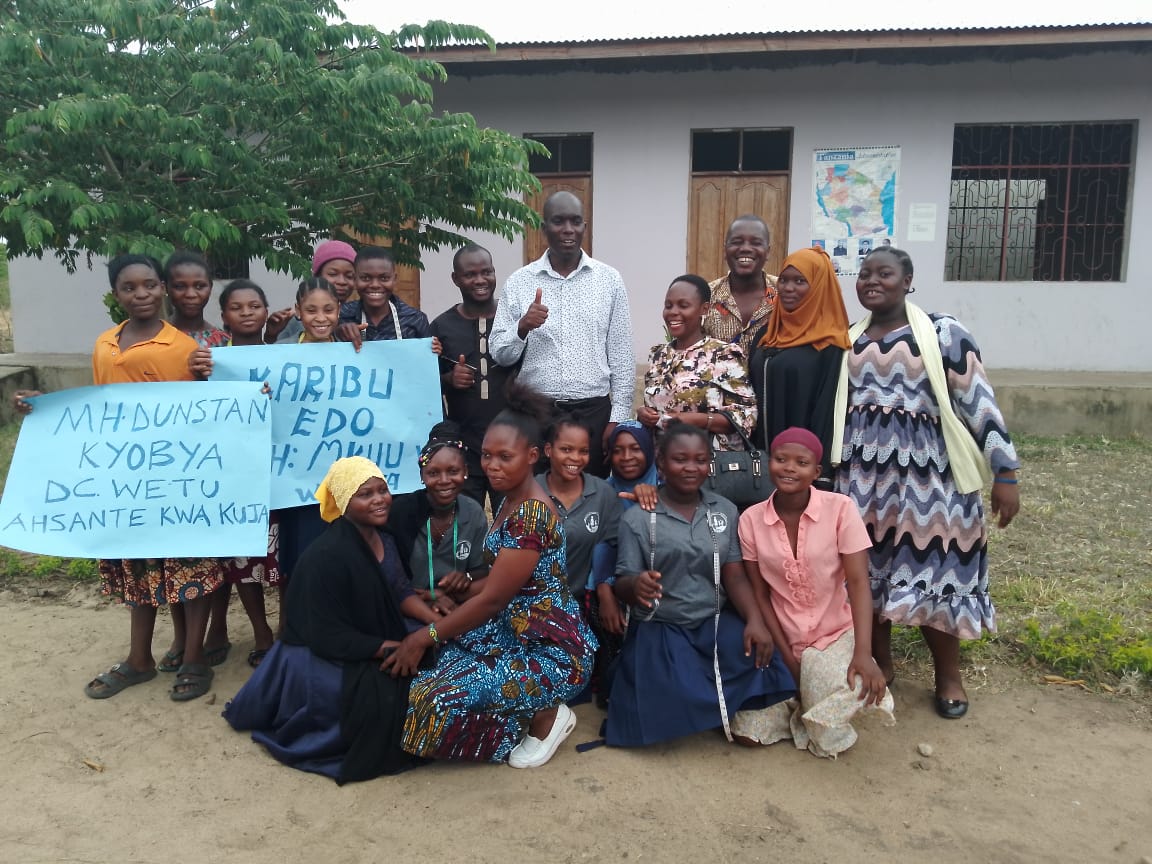 MH:DUNSTAN
KYOBYA
DC. WETU
AHSANTE KWA KUJA
KARIBU
EDO
H: MKUU
Tanzania